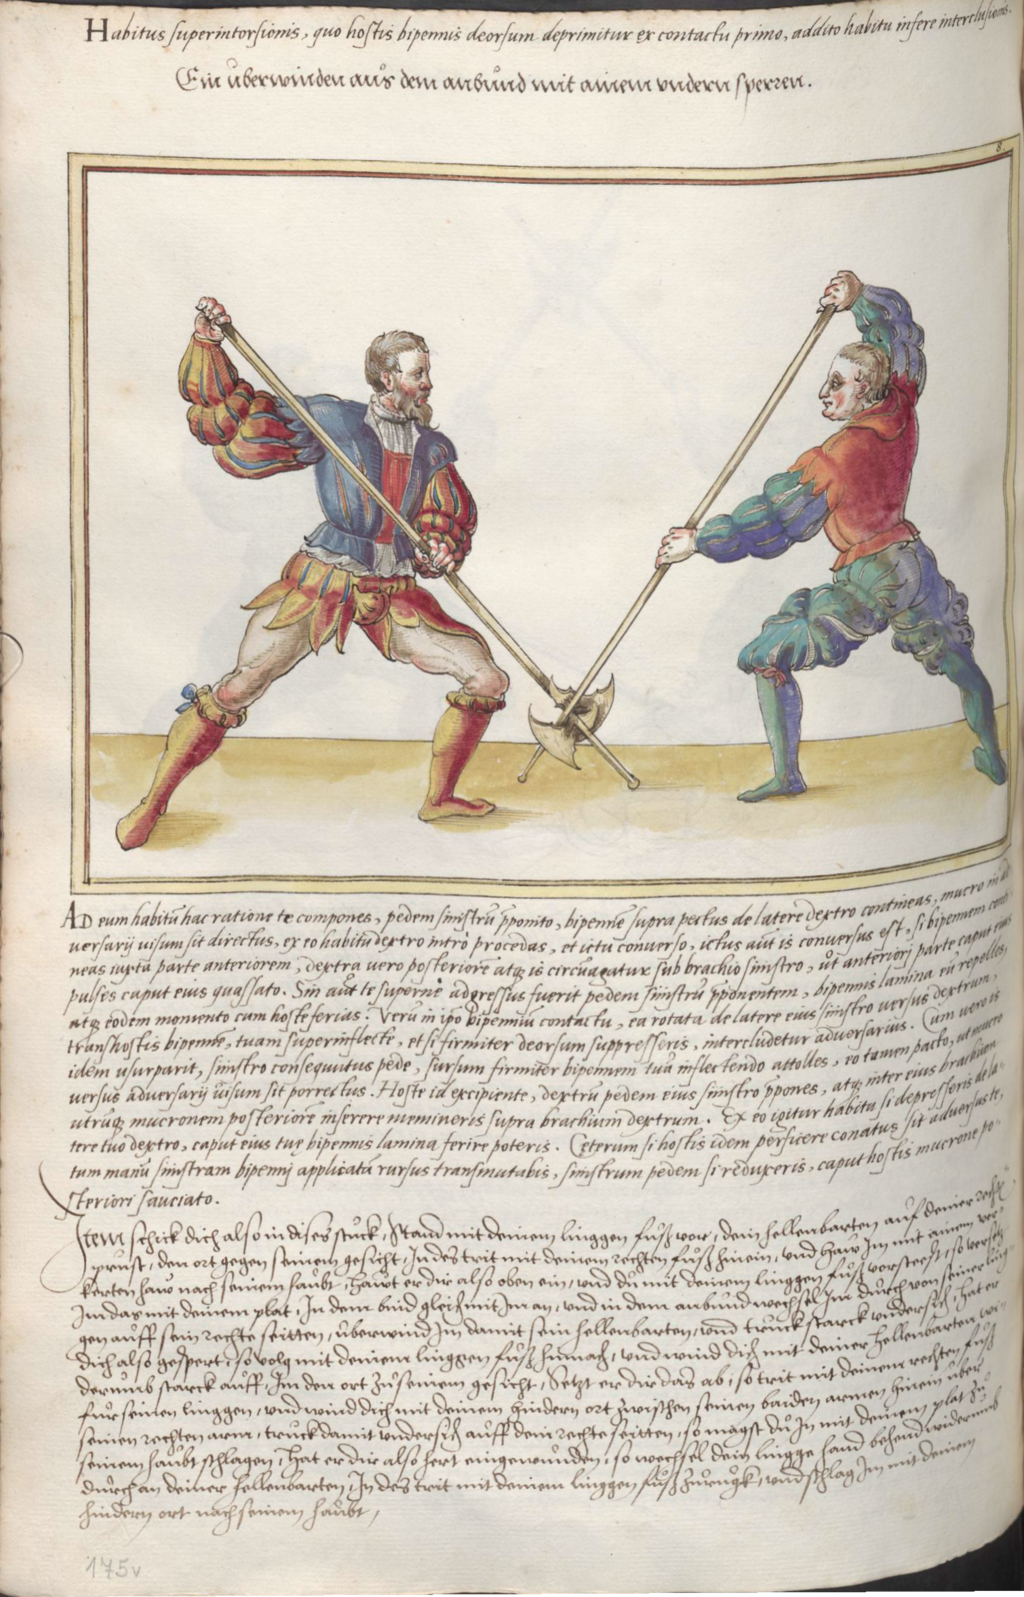 Habitus superintorsionis, quo hostis bipennis deorsum deprimitur ex contactu primo, addito habitu infere interclusionis.
Ein überwinden aus dem anbund mit ainem undern sperren.
8
AD eum habitū hac ratione te compones, pedem sinistrū p̄ponito, bipennē supra pectus de latere dextro contineas, mucro in ad
versarij uisum sit directus, ex eo habitu dextro intrò procedas, et ictu conuerso, ictus aūt is conuersus est, si bipennem conti
neas iuxta parte anteriorem, dextra vero posteriorē atq; is circūagatur sub brachio sinistro, ùt anteriorj parte caput eius
pulses caput eius quassato. Sin aūt te supernè adgressus fuerit pedem sinistrū p̄ponentem, bipennis lamina eū repelles,
atq; eodem momento cum hoste ferias. Verū in ipo bipenniū contactu, ea rotata de latere eius sinistro versus dextrum,
trans hostis bipennē, tuam superinflecte, et si firmiter deorsum suppresseris, intercludetur aduersarius. Cum vero is
idem usurparit, sinistro consequutus pede, sursum firmiter bipennem tuā inflectendo attolles, eo tamen pacto, ut mucro
versus aduersarij uisum sit porrectus. Hoste id excipiente, dextrū pedem eius sinistro p̄pones, atq; inter eius brachium
utrūq; mucronem posteriorē inserere memineris supra brachium dextrum. Ex eo igitur habitu si depresseris de la-
tere tuo dextro, caput eius tuę bipennis lamina ferire poteris. Ceterum si hostis idem perficere conatus sit aduersus te,
tum manū sinistram bipennj applicatā rursus transmutabis, sinistrum pedem si reduxeris, caput hostis mucrone po-
steriori sauciato.
Item schick dich also in dises stuck, Stand mit deinem linggen fuß vor, dein hellenbarten auf deiner recht
prust, den ort gegen seinem gesicht, In des trit mit deinem rechten fuß hinein, und haw Im mit ainem ver
kerten haw nach seinem haubt, hawt er dir also oben ein, und du mit deinem linggen fuß vorsteest, so versetz
Im das mit deinem plat, In dem bind gleich mit Im an, und in dem anbund wechsel Im durch von seiner ling
gen auff sein rechte seitten, überwind Im damit sein hellenbarten, und truck starck undersich, hat er
dich also gespert, so volg mit deinem linggen fuß hinnach, und wind dich mit deiner hellenbarten wi-
derumb starck auff, Im den ort zu seinem gesicht, Setzt er dir das ab, so trit mit deinem rechten fuß
für seinen linggen, und wind dich mit deinem hindern ort zwischen seinen baiden armen hinein über
seinen rechten arm, truck damit undersich auff dein rechte seitten, so magst du In mit deinem plat zu
seinem haubt schlagen, hat er dir also hert eingewunden, so wechsel dein lingge hand behend widerumb
durch an deiner hellenbarten, In des trit mit deinem linggen fuß zurugk, und schlag Im mit deinem
hindern ort nach seinem haubt,
175v